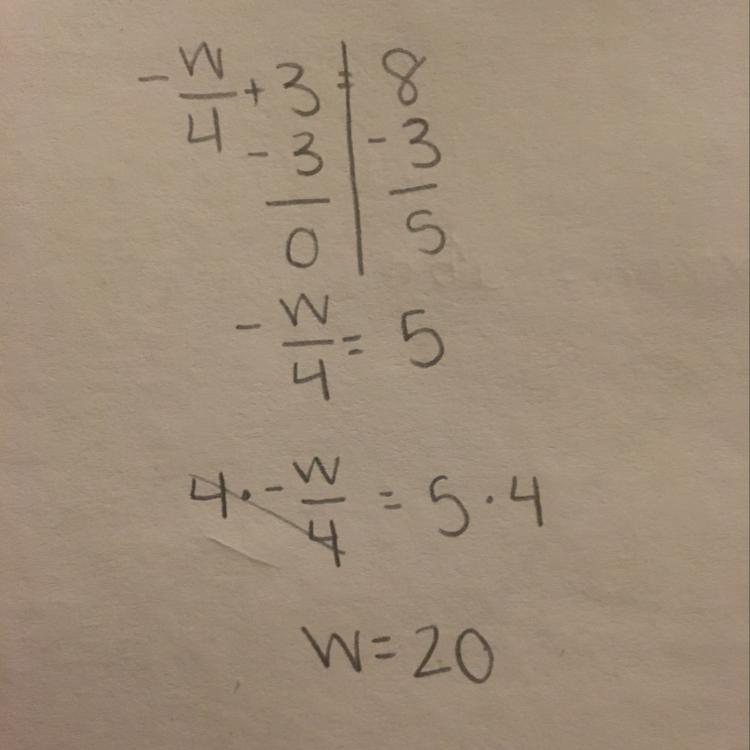 -w/4 + 3 = 8
-3 -3
0 5
-w/4 = 5
4 · -w/4 = 5 · 4
w = 20